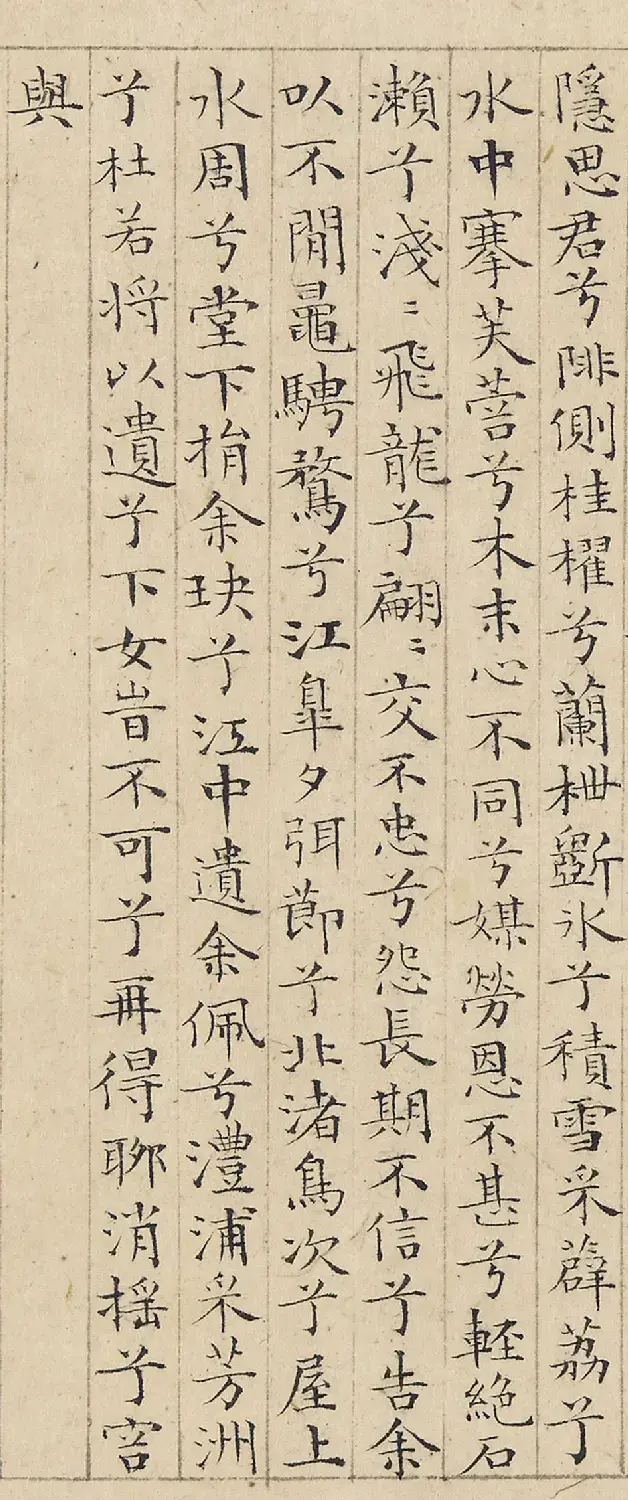 隱思君兮陫側桂櫂兮蘭枻斲氷兮積雪采薜荔兮
水中搴芙蓉兮木末心不同兮媒勞恩不甚兮輕絕石
瀨兮淺〻飛龍兮翩〻交不忠兮怨長期不信兮告余
以不閒鼂騁騖兮江皐夕弭節兮北渚鳥次兮屋上
水周兮堂下捐余玦兮江中遺余佩兮澧浦采芳洲
兮杜若將以遺兮下女旹不可兮再得聊消搖兮容
與